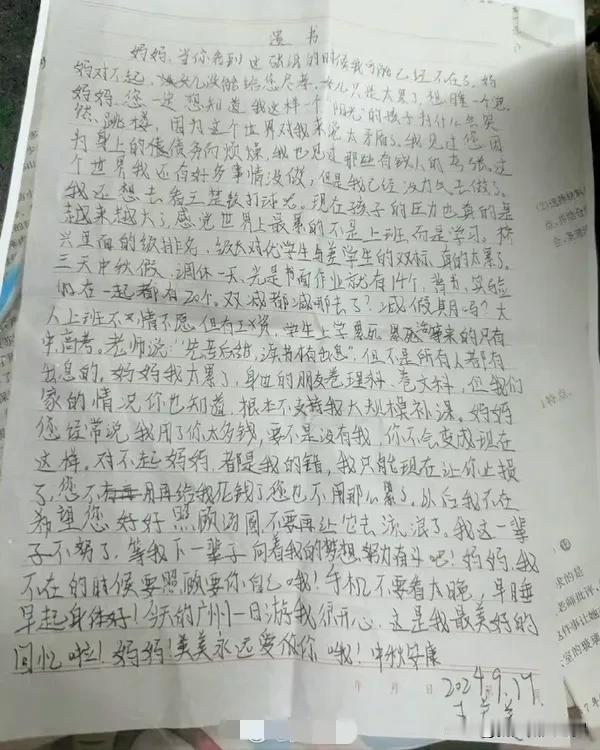 遗书
妈妈,当你看到这封遗书的时候我可能已经不在了。妈
妈对不起,女儿没能给您尽孝,女儿只是太累了,想睡一个觉
妈妈您一定想知道,我这样一个"阳光"的孩子为什么会突
然跳楼,因为这个世界对我来说太矛盾了。我见过您因
为身上的债务而烦燥,我也见过那些有钱人的夸张。这
个世界我还有好多事情没做,但是我已经没力气去做了。
我还想去看三楚教打球呢。现在孩子的压力也真的是
越来越大了,感觉世界上最累的不是上班,而是学习。
兴里面的级排名,级长对优学生与差学生的双标,真的太累了。
三天中秋假,调休一天,光是书面作业就有14个,背书,实验
在一起都有20个。双减都减哪去了?减假期吗?大
人上班不情不愿但有工资,学生上学累死累死 来的只有
中高考。老师说:"先苦后甜,读书有出息",但不是所有人都有
出息的。妈妈我太累了,身边的朋友卷理科,卷文科,但我们
家的情况你也知道,根本不支持我大规模补课。妈妈
您经常说我用了你太多钱,要不是没有我,你不会变成现在
这样。对不起妈妈,都是我的错,我只能现在让你止损
了,您不用再给我花钱了您也不用那么累了。以后我不在
希望您好好照顾汤圆不要再让它去流浪了。我这一辈
子不努了,等我下一辈子向着我的梦想努力奋斗吧!妈妈,我
不在的时候要照顾要你自己哦!手机不要看太晚,早睡
早起身体好!今天的广州一日游我很开心,这是我最美好的
回忆啦!妈妈!美美永远爱你哦!中秋安康
年 月 日
2024.9.17
第 页